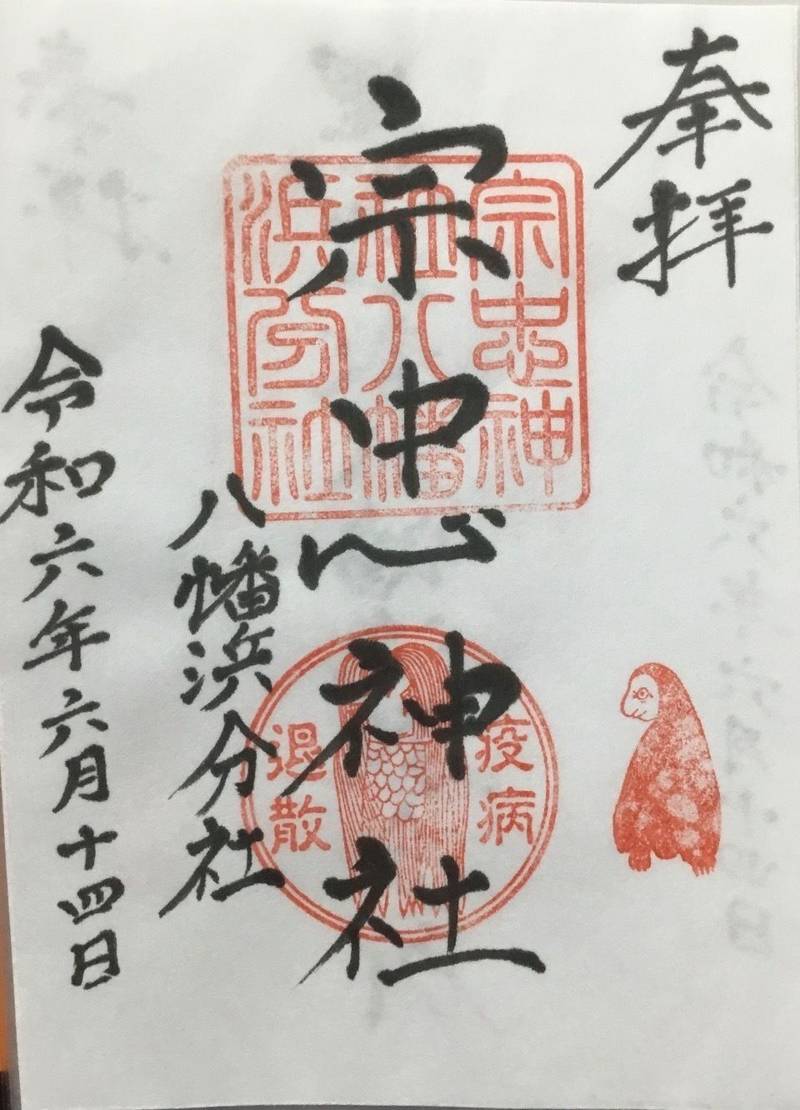 奉拝
宗忠神社
八幡浜分社
令和六年六月十四日
宗忠神
社八幡
浜分社
疫病
退散